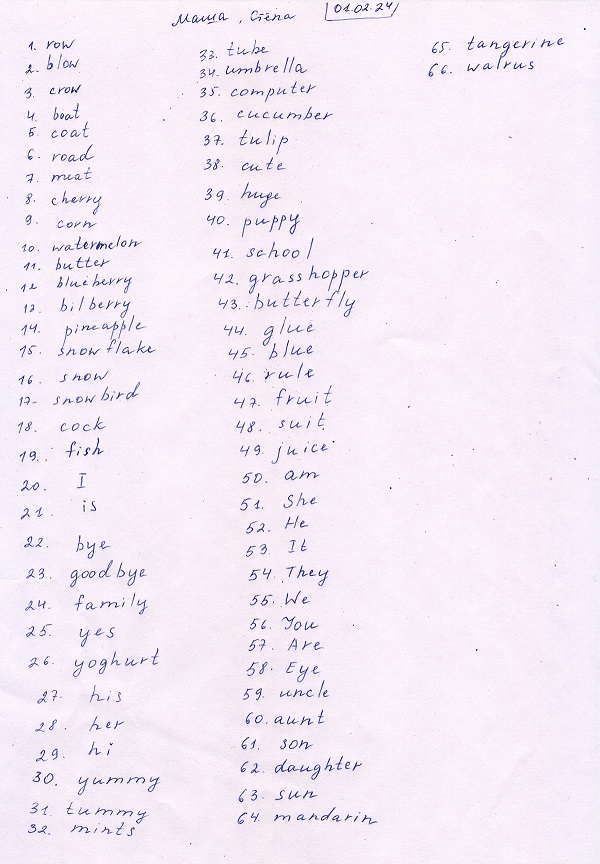 Маша, Стёпа 01.02.24
1. row
2. blow
3. crow
4. boat
5. coat
6. road
7. meat
8. cherry
9. corn
10. watermelon
11. butter
12 blueberry
13. bilberry
14. pineapple
15. snowflake
16. snow
17- snowbird
18. cock
19. fish
20. I
21. is
22. bye
23. goodbye
24. family
25. yes
26. yoghurt
27. his
28. her
29. hi
30. yummy
31. tummy
32. mints
33. tube
34. umbrella
35. computer
36. cucumber
37. tulip
38. cute
39. huge
40. puppy
41. school
42. grasshopper
43. butterfly
44. glue
45. blue
46. rule
47. fruit
48. suit
49. juice
50. am
51. She
52. He
53. It
54. They
55. We
56. You
57. Are
58. Eye
59. uncle
60. aunt
61. son
62. daughter
63. sun
64. mandarin
65. tangerine
66. walrus